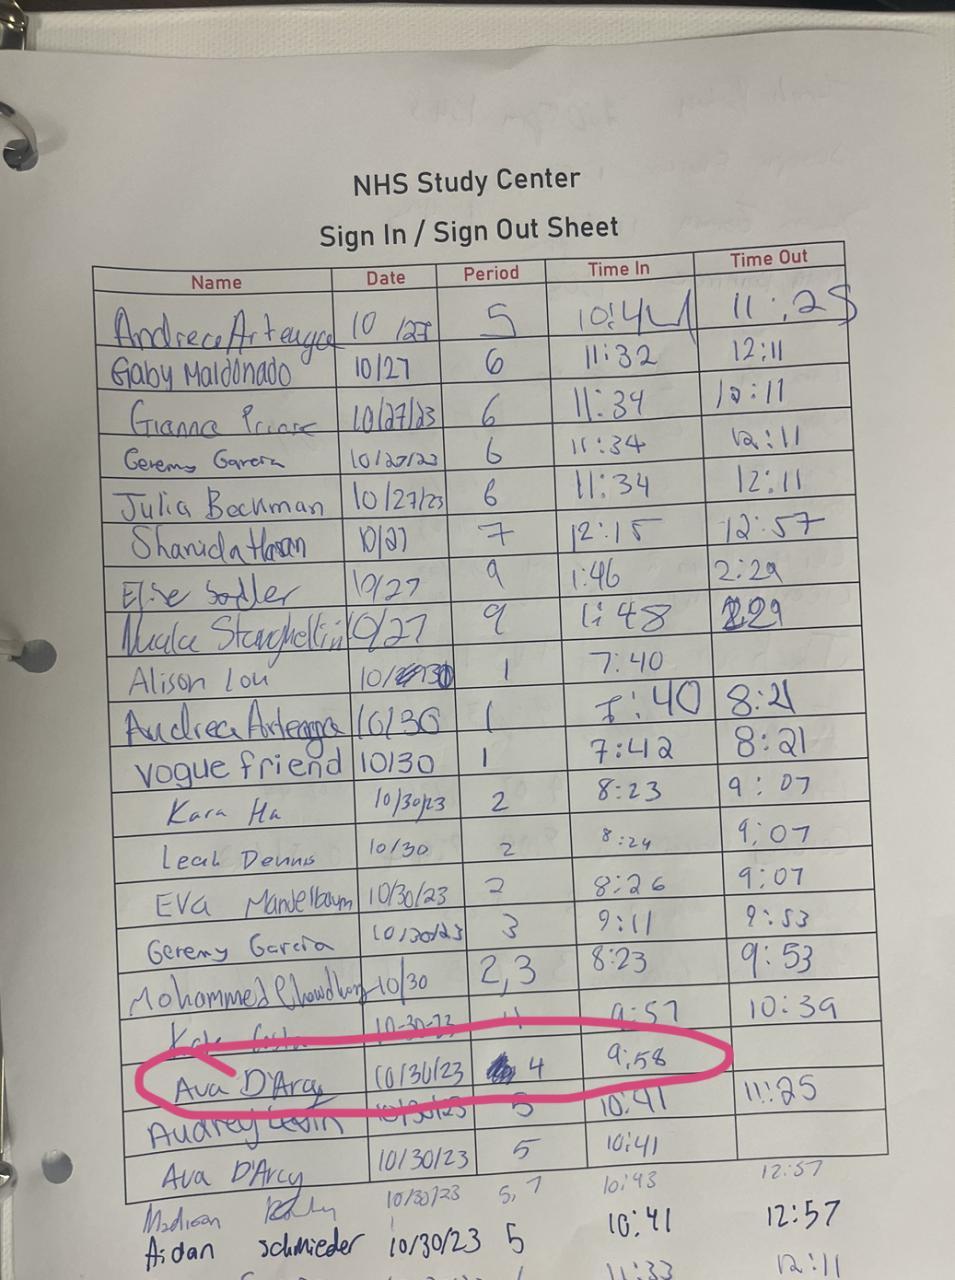 NHS Study Center
Sign In / Sign Out Sheet
Name Date Period Time In Time Out
Andrea Arteaga 10/27 5 10:44 11:25
Gaby Maldonado 10/27 6 11:32 12:11
Gianna 10/27/23 6 11:34 12:11
Geremy Garcia 10/27/23 6 11:34 12:11
Julia Beckman 10/27/23 6 11:34 12:11
Shanida Hasan 10/27 7 12:15 12:57
Elise Sadler 10/27 9 1:46 2:29
Nuala 10/27 9 1:48 229
Alison Lou 10/30 1 7:40
Andrea Arteaga 10/30 1 7:40 8:21
vogue friend 10/30 1 7:42 8:21
Kara Ha 10/30/23 2 8:23 9:07
Leah Dennis 10/30 2 8:24 9:07
EVa Mandelbaum 10/30/23 2 8:26 9:07
Geremy Garcia 10/30/23 3 9:11 9:53
Mohammed Chowdhury 10/30 2,3 8:23 9:53
10-30-23 4 9:57 10:39
Ava D'Arcy 10/30/23 4 9:58
Audrey Levin 10/30/23 5 10:41 11:25
Ava D'Arcy 10/30/23 5 10:41
Madison 10/30/23 5,7 10:43 12:57
Aidan Schmieder 10/30/23 5 10:41 12:57
11:33 12:11